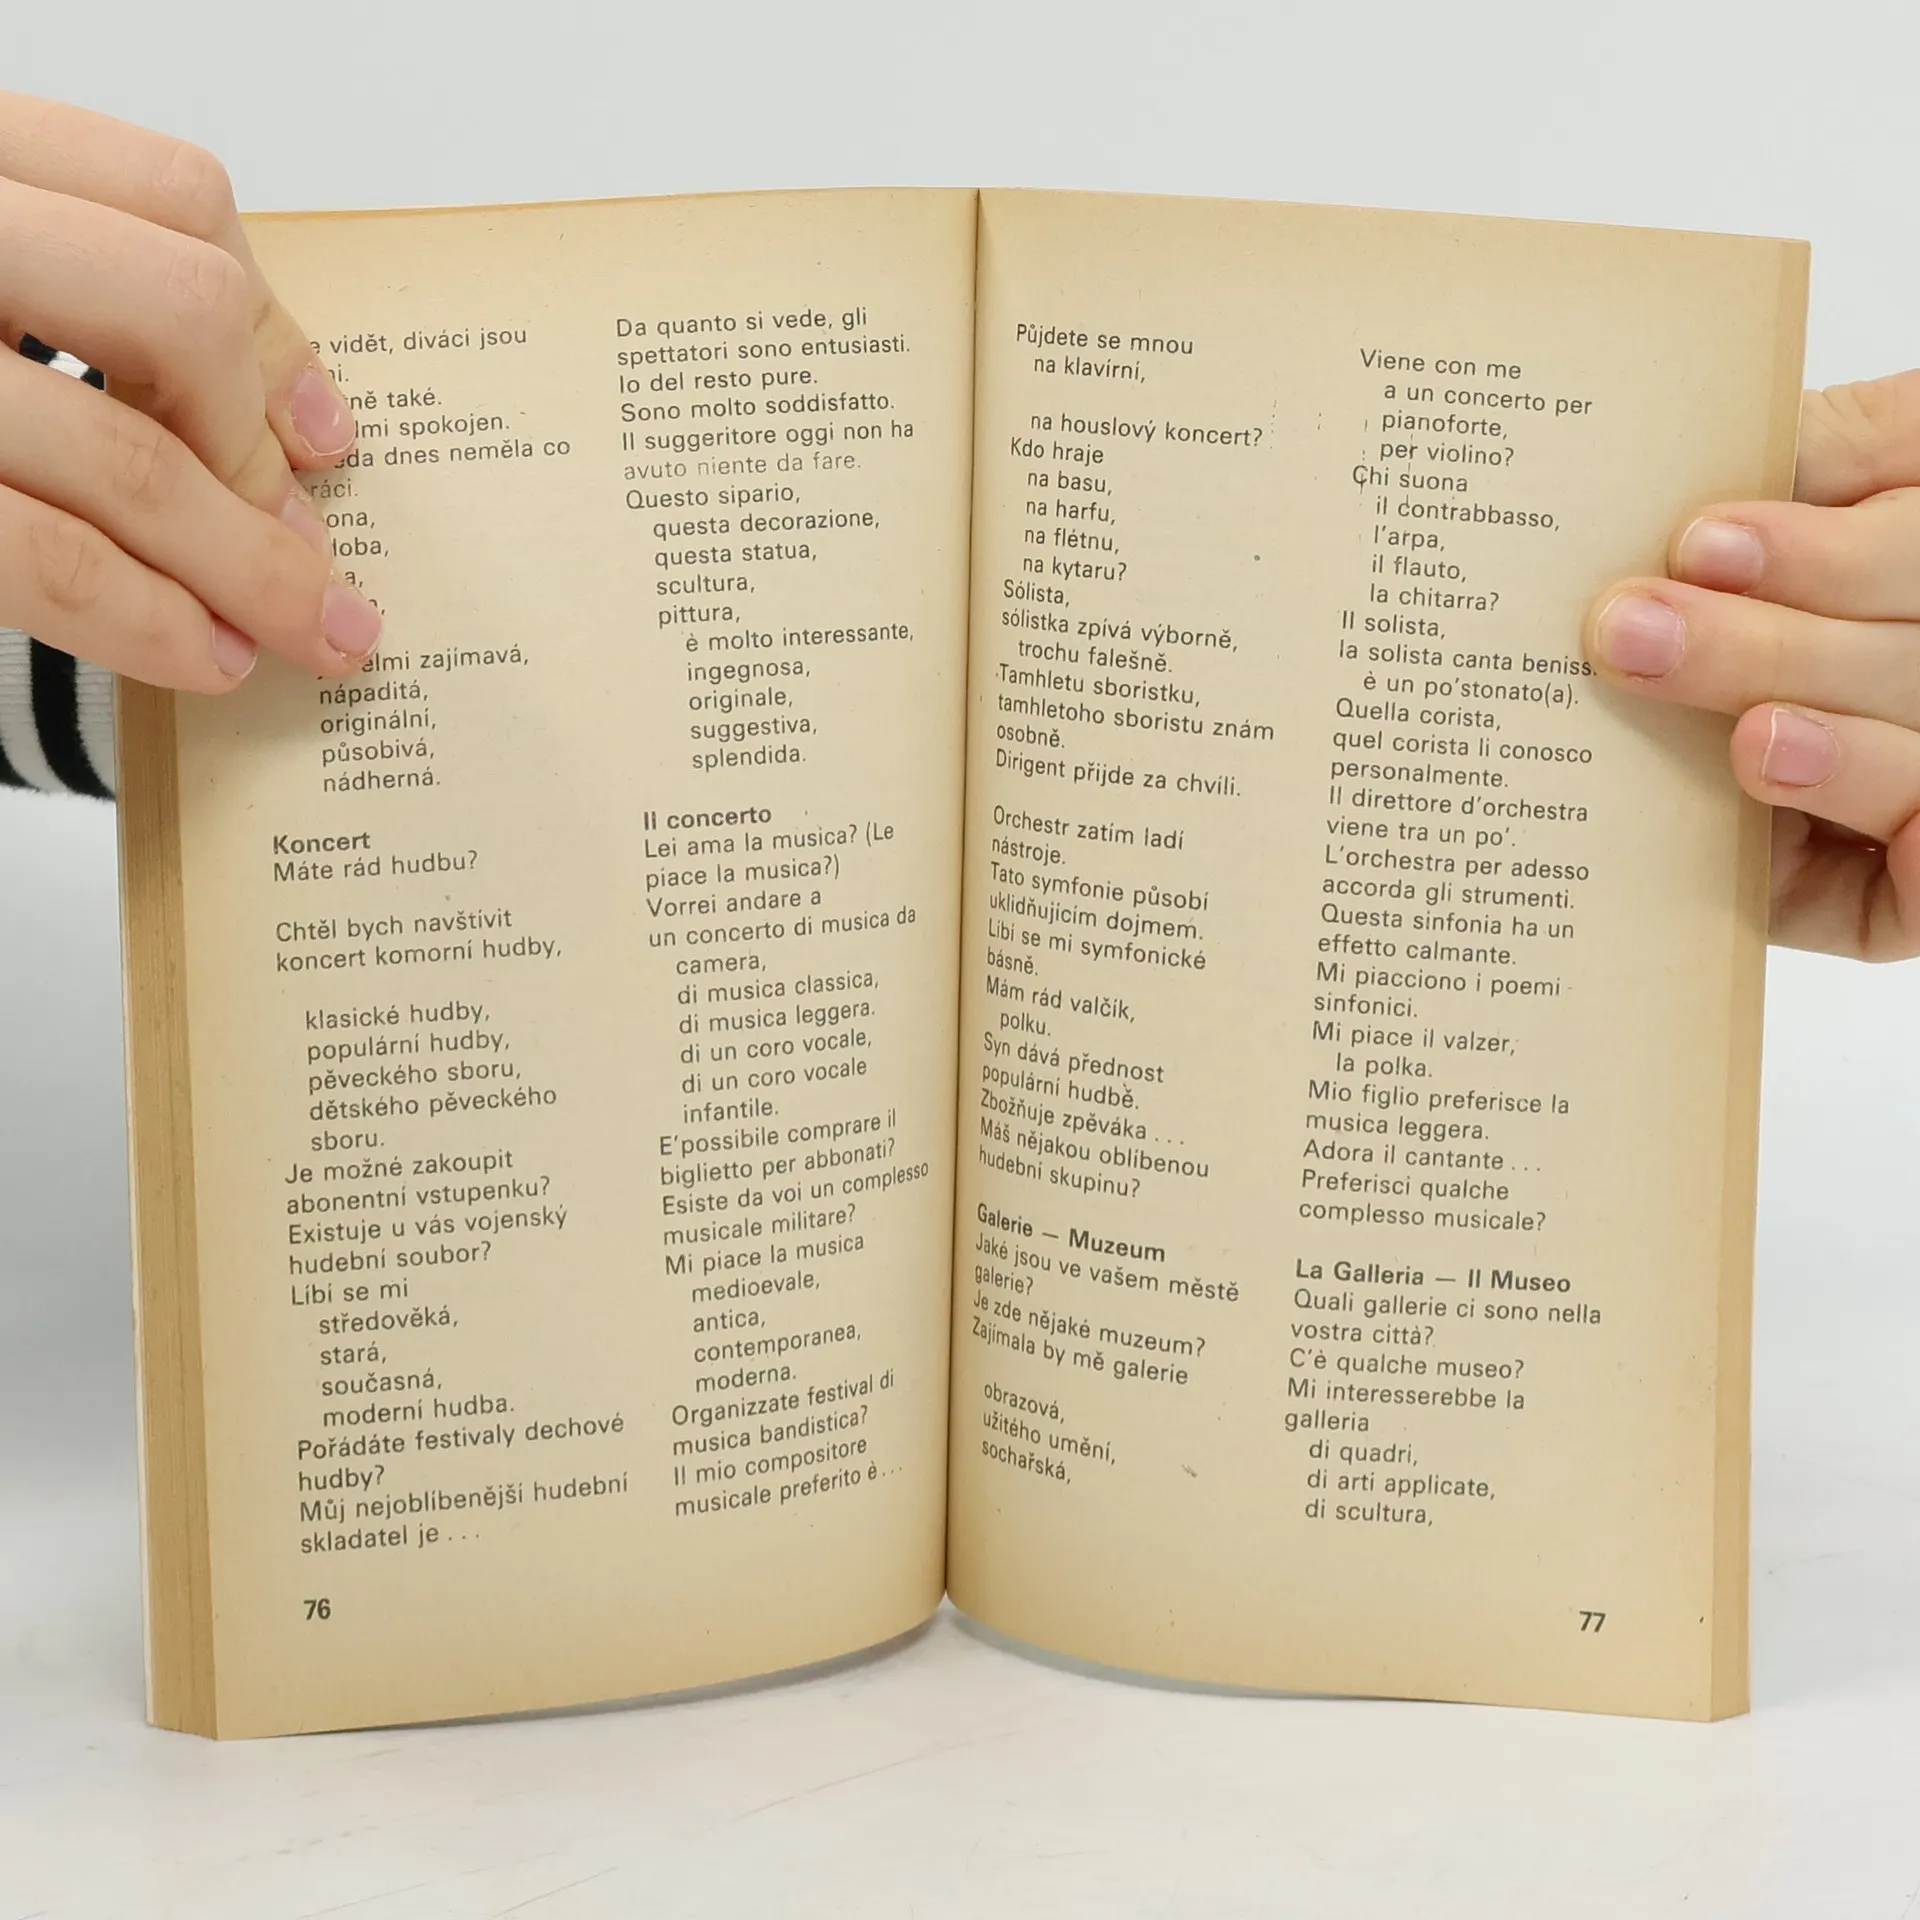 vidět, diváci jsou
také.
spokojen.
dnes neměla co
zajímavá,
nápaditá,
originální,
působivá,
nádherná.
Koncert
Máte rád hudbu?
Chtěl bych navštívit
koncert komorní hudby,
klasické hudby,
populární hudby,
pěveckého sboru,
dětského pěveckého
sboru.
Je možné zakoupit
abonentní vstupenku?
Existuje u vás vojenský
hudební soubor?
Líbí se mi
středověká,
stará,
současná,
moderní hudba.
Pořádáte festivaly dechové
hudby?
Můj nejoblíbenější hudební
skladatel je . . .
76
Da quanto si vede, gli
spettatori sono entusiasti.
Io del resto pure.
Sono molto soddisfatto.
Il suggeritore oggi non ha
avuto niente da fare.
Questo sipario,
questa decorazione,
questa statua,
scultura,
pittura,
è molto interessante,
ingegnosa,
originale,
suggestiva,
splendida.
Il concerto
Lei ama la musica? (Le
piace la musica?)
Vorrei andare a
un concerto di musica da
camera,
di musica classica,
di musica leggera.
di un coro vocale,
di un coro vocale
infantile.
E'possibile comprare il
biglietto per abbonati?
Esiste da voi un complesso
musicale militare?
Mi piace la musica
medioevale,
antica,
contemporanea,
moderna.
Organizzate festival di
musica bandistica?
Il mio compositore
musicale preferito è . . .
Půjdete se mnou
na klavírní,
na houslový koncert?
Kdo hraje
na basu,
na harfu,
na flétnu,
na kytaru?
Sólista,
sólistka zpívá výborně,
trochu falešně.
Tamhletu sboristku,
tamhletoho sboristu znám
osobně.
Dirigent přijde za chvíli.
Orchestr zatím ladí
nástroje.
Tato symfonie působí
uklidňujícím dojmem.
Líbí se mi symfonické
básně.
Mám rád valčík,
polku.
Syn dává přednost
populární hudbě.
Zbožňuje zpěváka . . .
Máš nějakou oblíbenou
hudební skupinu?
Galerie — Muzeum
Jaké jsou ve vašem městě
galerie?
Je zde nějaké muzeum?
Zajímala by mě galerie
obrazová,
užitého umění,
sochařská,
Viene con me
a un concerto per
pianoforte,
per violino?
Chi suona
il contrabbasso,
l'arpa,
il flauto,
la chitarra?
Il solista,
la solista canta
è un po'stonato(a).
Quella corista,
quel corista li conosco
personalmente.
Il direttore d'orchestra
viene tra un po'.
L'orchestra per adesso
accorda gli strumenti.
Questa sinfonia ha un
effetto calmante.
Mi piacciono i poemi
sinfonici.
Mi piace il valzer,
la polka.
Mio figlio preferisce la
musica leggera.
Adora il cantante . . .
Preferisci qualche
complesso musicale?
La Galleria — Il Museo
Quali gallerie ci sono nella
vostra città?
C'è qualche museo?
Mi interesserebbe la
galleria
di quadri,
di arti applicate,
di scultura,
77